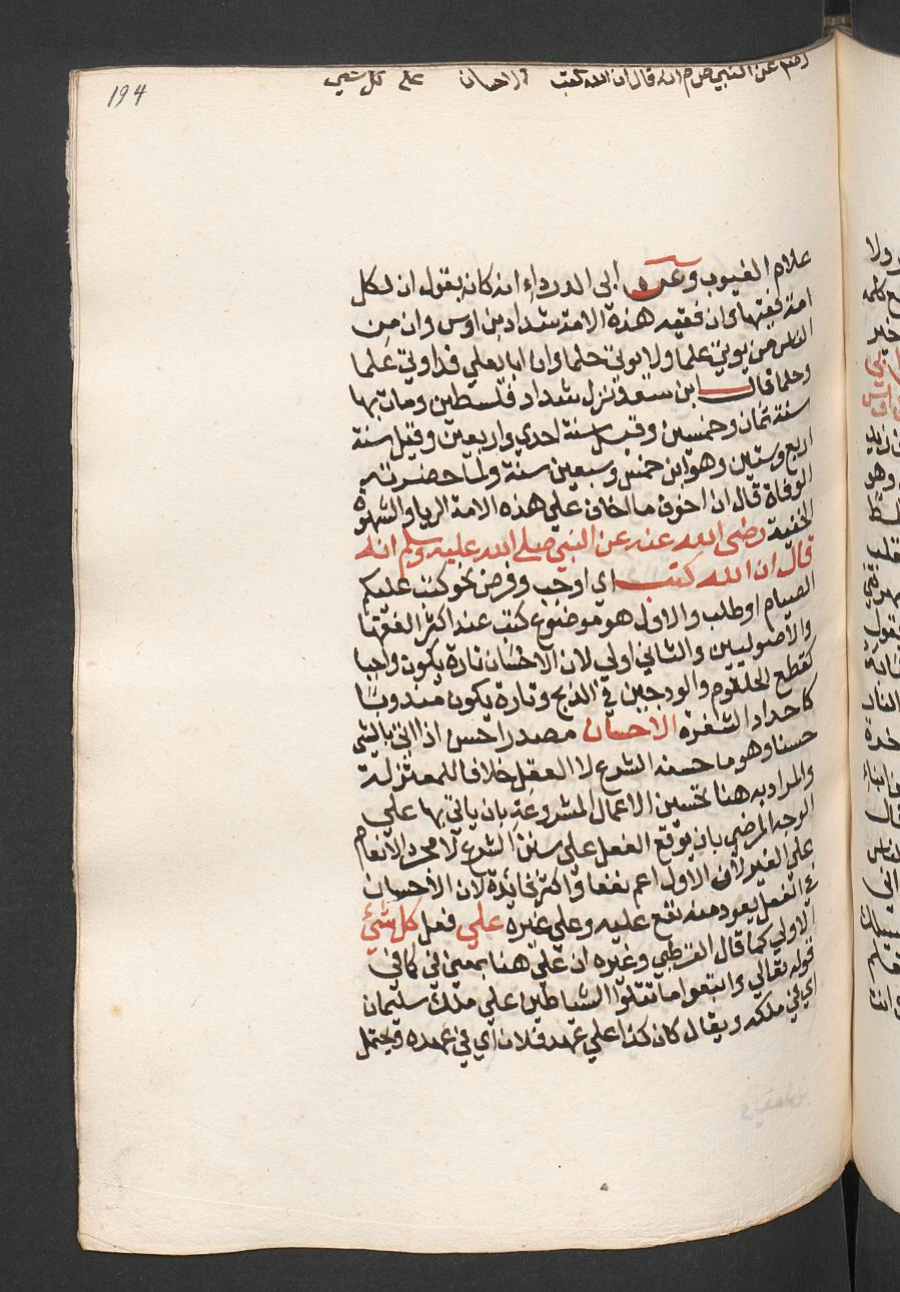 194
رضه عن النبي صلم انه قال ان الله كتب الاحسان على كل شيء
علام الغيوب وعن ابى الدرداء انه كان يقول ان لكل
امة فقيها وان فقيه هذه الامة شداد بن اوس وان من
الناس من يوتي علما ولا يوتى حلما وان ابا يعلي قد اوتي علما
وحلما قال ابن سعد نزل شداد فلسطين ومات بها
سنة ثمان وخمسين وقيل سنة احدي واربعين وقيل سنة
اربع وستين وهو ابن خمس وسبعين سنة ولما حضرته
الوفاة قال ان اخوف ما اخاف علي هذه الامة الريا والشهوة
الخفية رضى الله عنه عن النبي صلي الله عليه وسلم انه
قال ان الله كتب اى اوجب وفرض نحو كتب عليكم
الصيام او طلب والاول هو موضوع كتب عند اكثر الفقها
والاصوليين والثاني اولي لان الاحسان تارة يكون واجبا
كقطع الحلقوم والودجين في الذبح وتارة يكون مندوبا
كاحداد الشفرة الاحسان مصدر احسن اذا اتى بالشي
حسنا وهو ما حسنه الشرع لا العقل خلافا للمعتزلة
والمراد به هنا تحسين الاعمال المشروعة بان ياتي بها علي
الوجه المرضي بان يوقع الفعل علي سنن الشرع لا مجرد الانعام
علي الغير لان الاول اعم نفعا واكثر فائدة لان الاحسان
في الفعل يعود منه نفع عليه وعلي غيره علي فعل كل شئ
الاولي كما قال القرطبي وغيره ان علي هنا بمعني في كما في
قوله تعالي واتبعوا ما تتلوا الشياطين علي ملك سليمان
اي في ملكه ويقال كان كذا علي عهد فلان اي في عهده ويحتمل